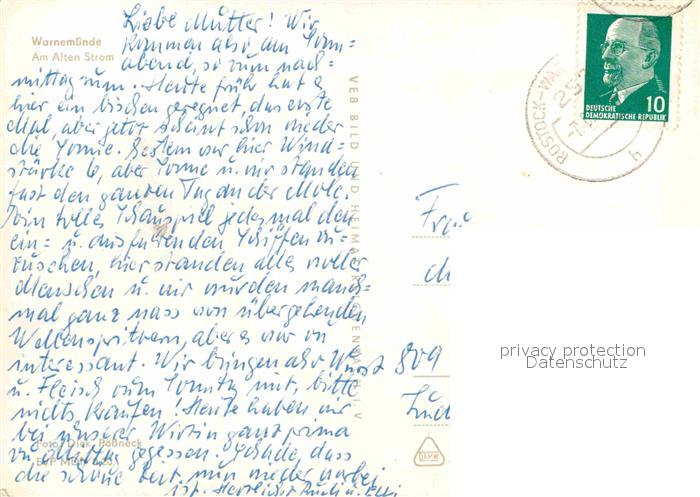 Warnemünde
Am Alten Strom
Liebe Mutter! Wir
kommen also am Sonn-
abend, so zum nach-
mittag rum. Heute früh hat es
hier ein bischen geregnet, das erste
Mal, aber jetzt scheint schon wieder
die Sonne. Gestern war hier Wind-
stärke 6, aber Sonne u. wir standen
fast den ganzen Tag an der Mole.
Ein tolles Schauspiel jedesmal den
ein- u. ausfahrenden Schiffen zu-
zusehen, hier standen alles voller
Menschen u. wir wurden manch-
mal ganz nass von übergehenden
Wellenspritzern, aber es war so
interessant. Wir bringen also Wurst
u. Fleisch zum Sonntag mit, bitte
nichts kaufen! Heute haben wir
bei unserer Wirtin ganz prima
zu Mittag gegessen. Schade, dass
die schöne Zeit nun wieder vorbei
ist. Herzlichst Rudi u. Elli
Foto: Dick, Pößneck
VEB BILD UND HEIMAT REICHENBACH I. V.
DEUTSCHE
DEMOKRATISCHE REPUBLIK
10
ROSTOCK-WAR
25
Fra
809
privacy protection
Datenschutz